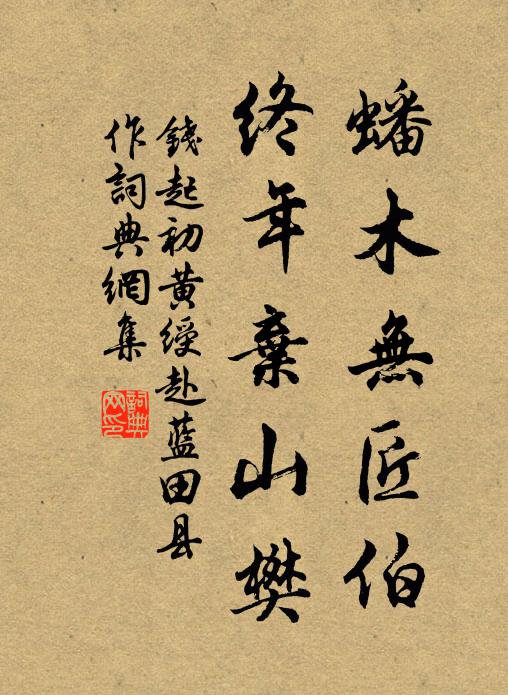 蟠木無匠伯
終年棄山樊
錢起初黃綬赴藍田县
作詞典網集
詞典网印